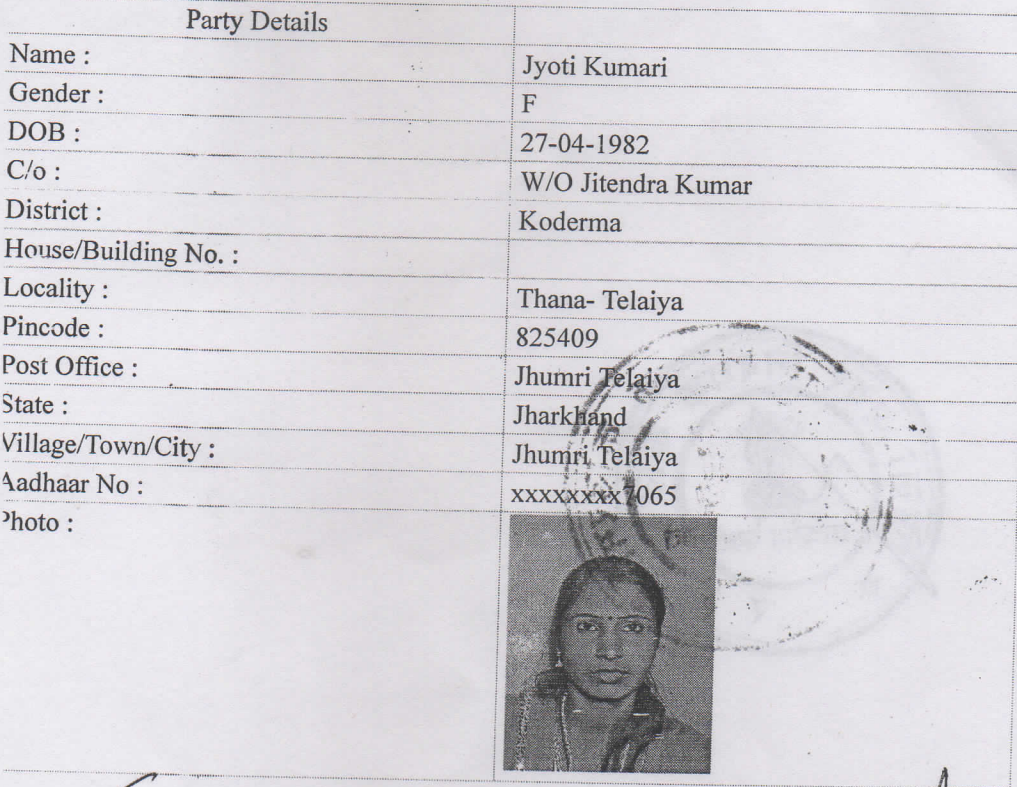 Party Details
Name : Jyoti Kumari
Gender : F
DOB : 27-04-1982
C/o : W/O Jitendra Kumar
District : Koderma
House/Building No. :
Locality : Thana- Telaiya
Pincode : 825409
Post Office : Jhumri Telaiya
State : Jharkhand
Village/Town/City : Jhumri Telaiya
Aadhaar No : xxxxxxxx7065
Photo :